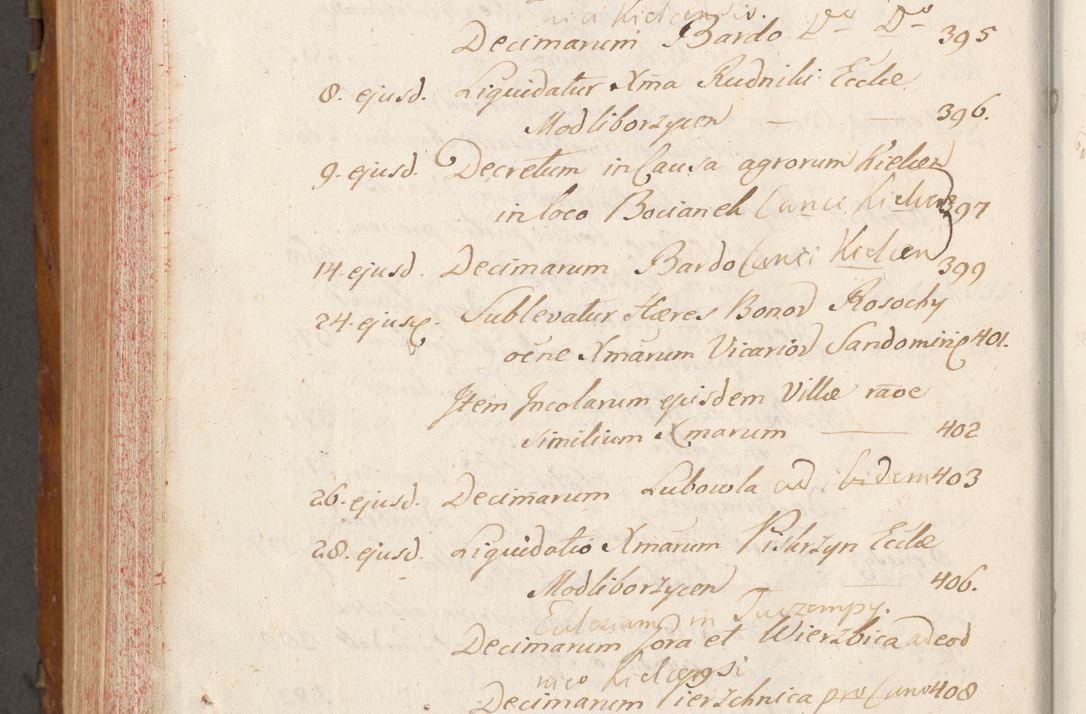 nica Kielcensis.
Decimarum Bardo Do Do 395
8. ejusd. Liquidatur Xma Rudniki Eccłæ
Modliborzycen — — 396.
9. ejusd. Decretum in Causa agrorum Kielcen
in loco Bocianek Canci Kielcen 397
14. ejusd. Decimarum Bardo Canci Kielcen 399
24. ejusd. Sublevatur Hæres Bonor Rosochy
oẽne Xmarum Vicarior Sandomir 401.
Item Incolarum ejusdem Villæ rãoe
similium Xmarum — 402
26. ejusd. Decimarum Lubowla ad ibidem 403
28. ejusd. Liquidatio Xmarum Piskrzyn Eccłæ
Modliborzycen — 406.
Eccleziam in Tuczempy.
Decimarum Jora et Wierzbica ad eod
nico Kielcensi
Decimarum Pierzchnica pro Cano 408